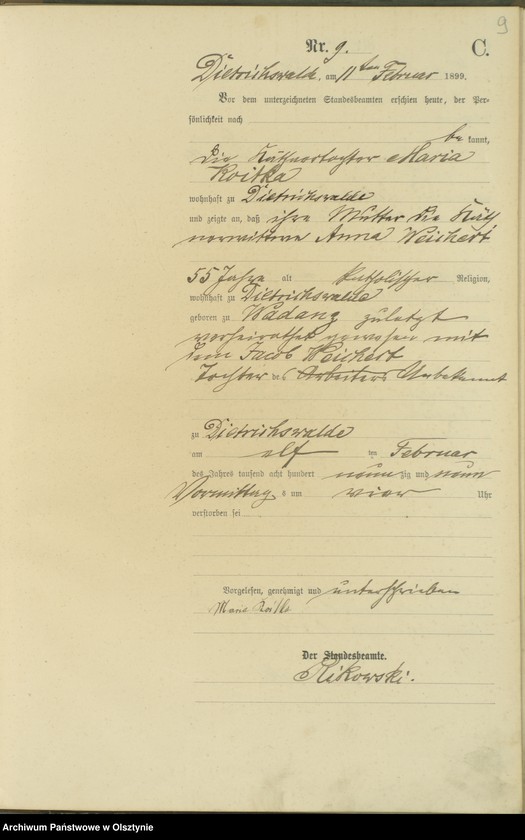 9
Nr. 9.
C.
Dietrichswalde, am 11ten Februar 1899.
Vor dem unterzeichneten Standesbeamten erschien heute, der Per-
sönlichkeit nach
be kannt,
die Käthnertochter Maria
Koitka
wohnhaft zu Dietrichswalde
und zeigte an, daß ihre Mutter die Käth
nerwittwe Anna Weichert
55 Jahre alt katholischer Religion,
wohnhaft zu Dietrichswalde
geboren zu Wadang zuletzt
verheirathet gewesen mit
dem Jacob Weichert
Tochter des Arbeiters Unbekannt
zu Dietrichswalde
am elf ten Februar
des Jahres tausend acht hundert neun zig und neun
Vormittags um vier Uhr
verstorben sei
Vorgelesen, genehmigt und unterschrieben
Maria Koitka
Der Standesbeamte.
Rikowski.
Archiwum Państwowe w Olsztynie